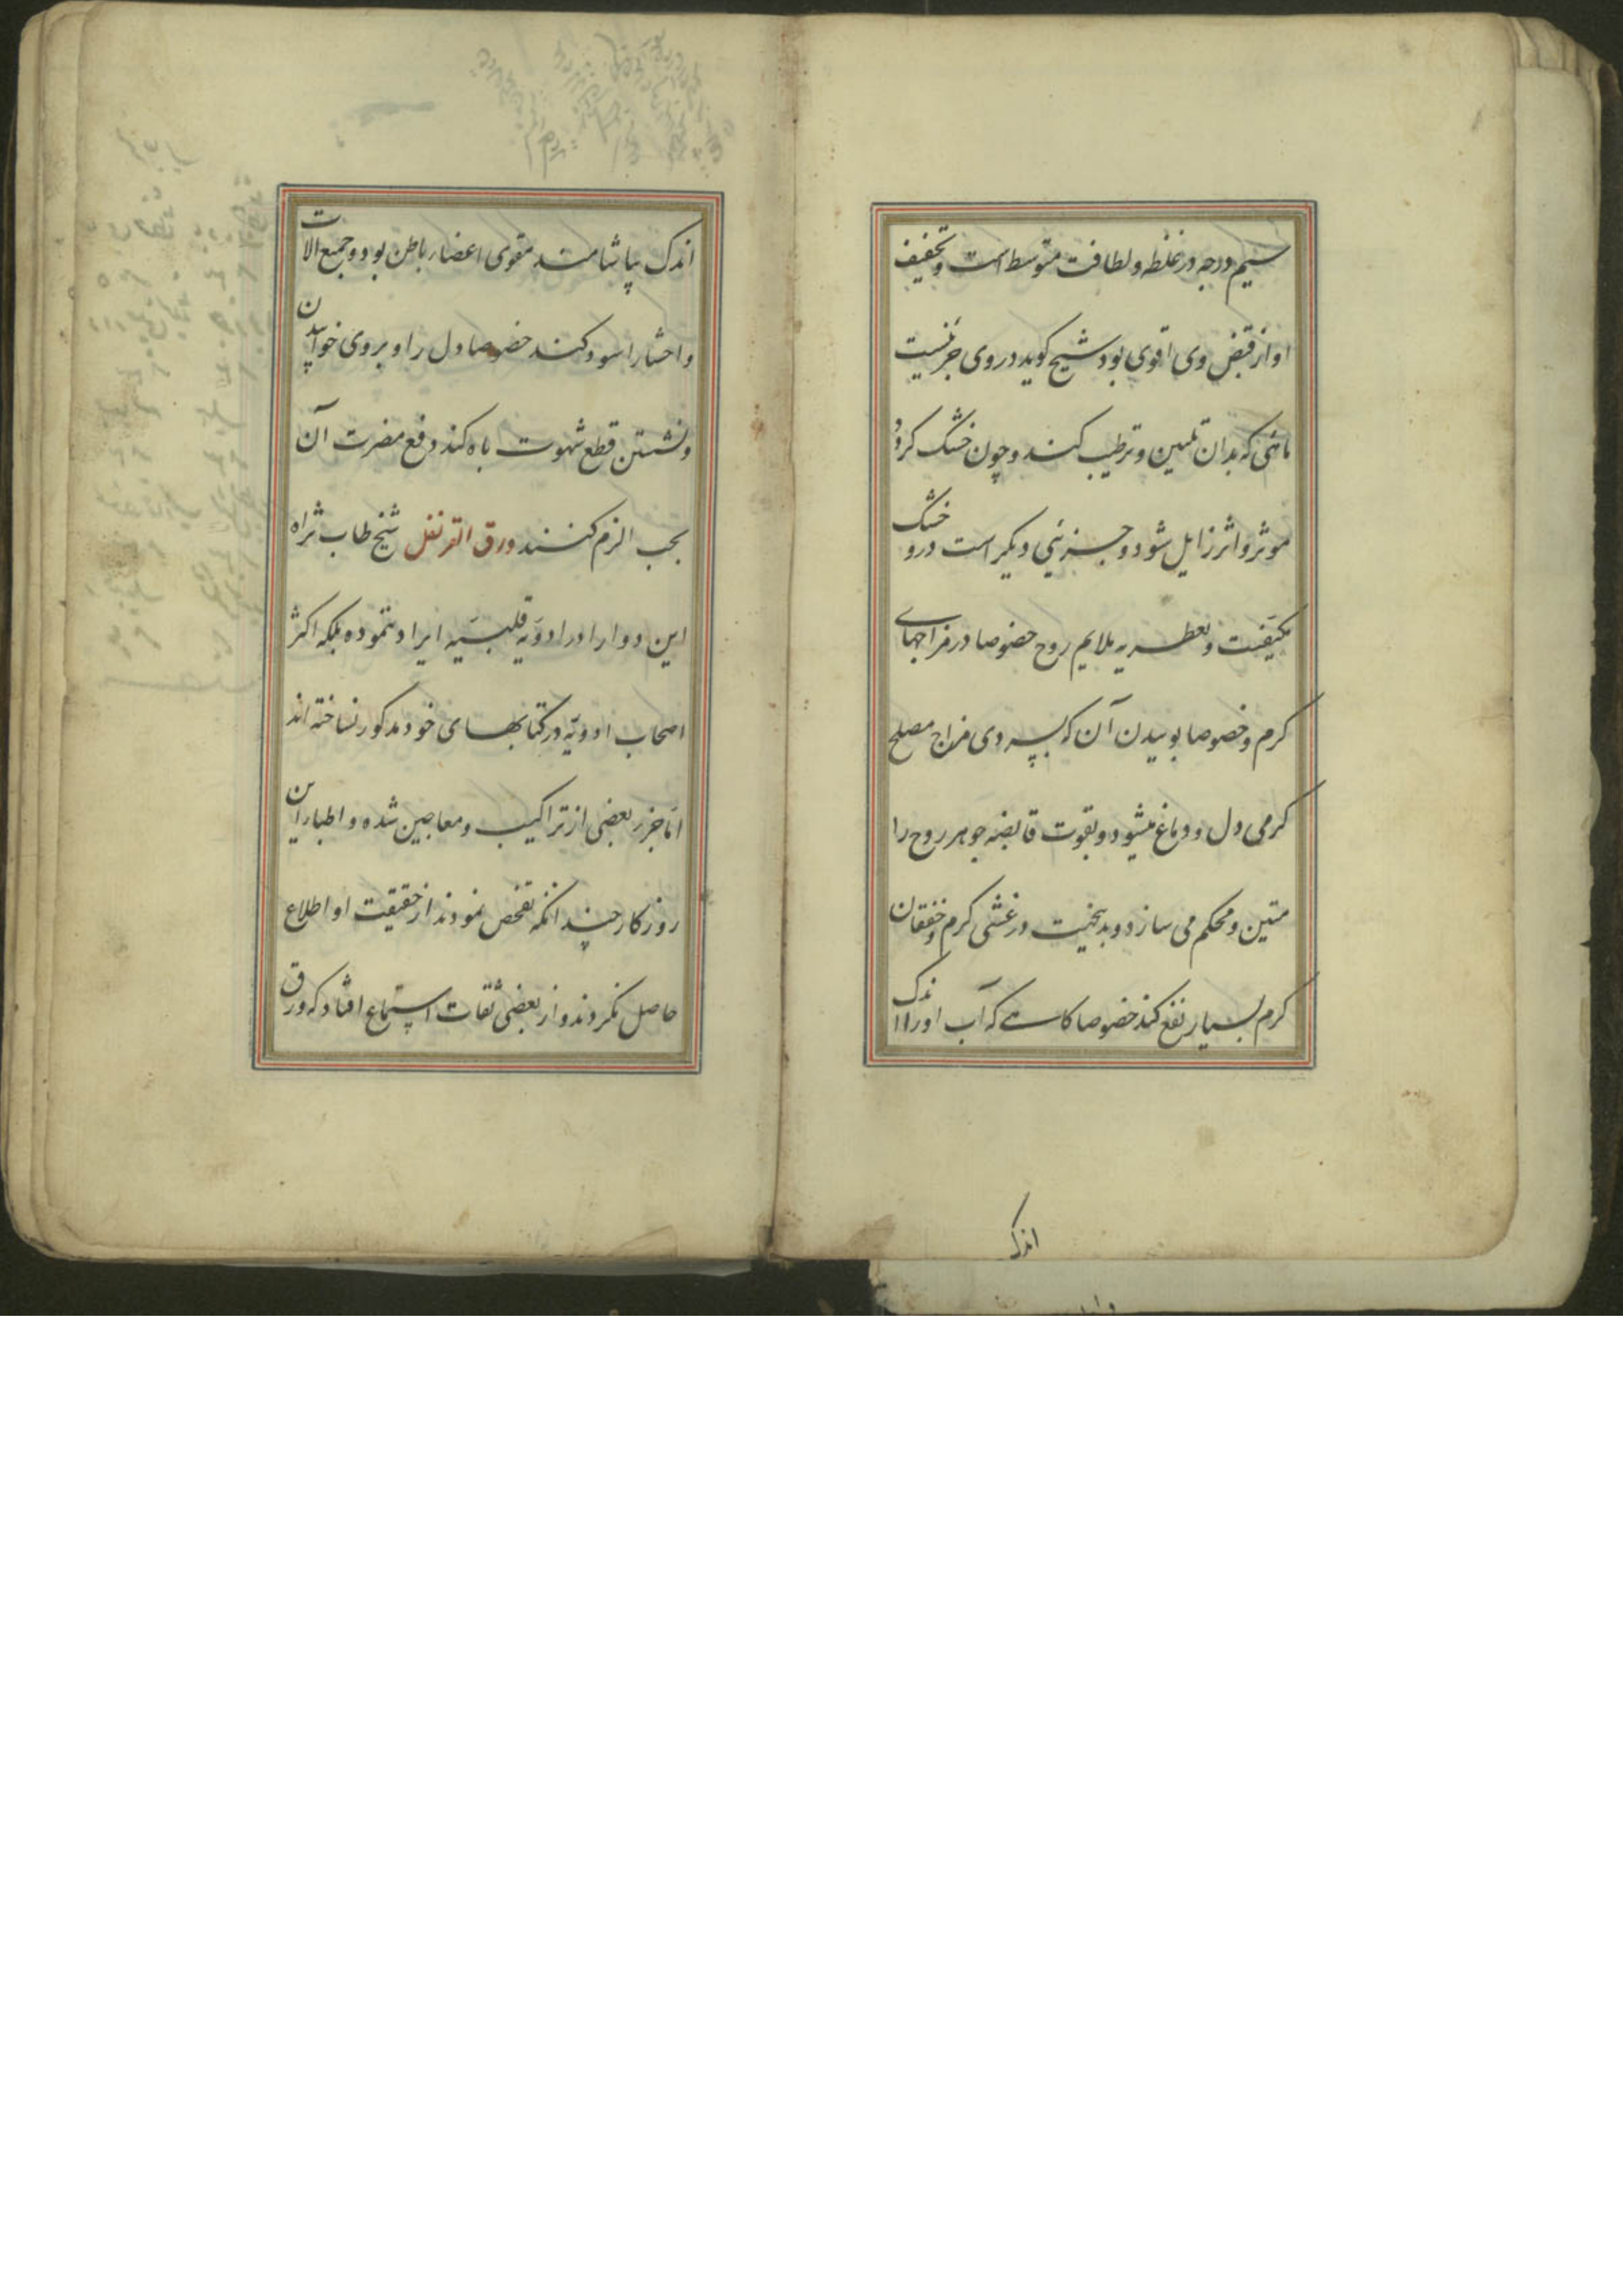 سیم درجه در غلظه و لطافت متوسط است و تخفیف
او از قبض وی اقوی بود شیخ کوید در وی جزئیست
مائی که بدان تلیین و ترطیب کند و چون خشک کردد
موثر و اثر زایل شود و جزئی دیکر است درو خشک
بکیفیت و عطریه ملایم روح خصوصا در مزاجهای
کرم و خصوصا بوییدن آن که بسردی مزاج مصلح
کرمی دل و دماغ میشود و بقوت قابضه جوهر روح را
متین و محکم می سازد و بدینجهت در غشی کرم و خفقان
کرم بسیار نفع کند خصوصا کاسه که آب او را اندک
اندک
اندک بیاشامند مقوی اعضاء باطن بود و جمیع الات
و احشا را سود کند خصوصا دل را و بر وی خوابیدن
و نشستن قطع شهوت باه کند دفع مضرت آن
بحب الزم کنند ورق القرنفل شیخ طاب ثراه
این دوا را در ادویه قلبیه ایراد ننموده بلکه اکثر
اصحاب ادویه در کتابهای خود مذکور نساخته اند
اما جزء بعضی از تراکیب و معاجین شده و اطباء این
روزکار چندانکه تفحص نمودند از حقیقت او اطلاع
حاصل نکردند و از بعضی ثقات استماع افتاد که ورق